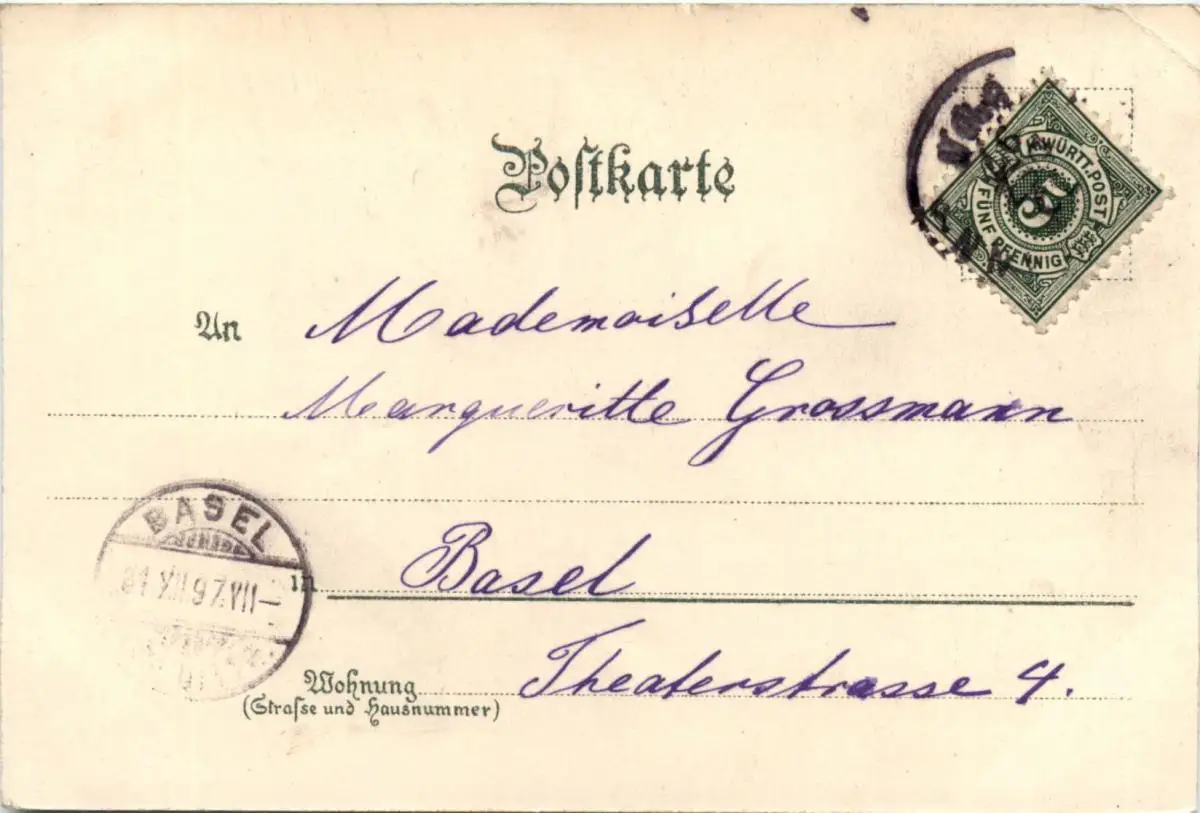 Postkarte
K. WÜRTT. POST
FÜNF PFENNIG
5
An Mademoiselle
Margueritte Grossmann
BASEL
31 XII 97 VII–
in Basel
Wohnung Theaterstrasse 4.
(Straſse und Hausnummer)